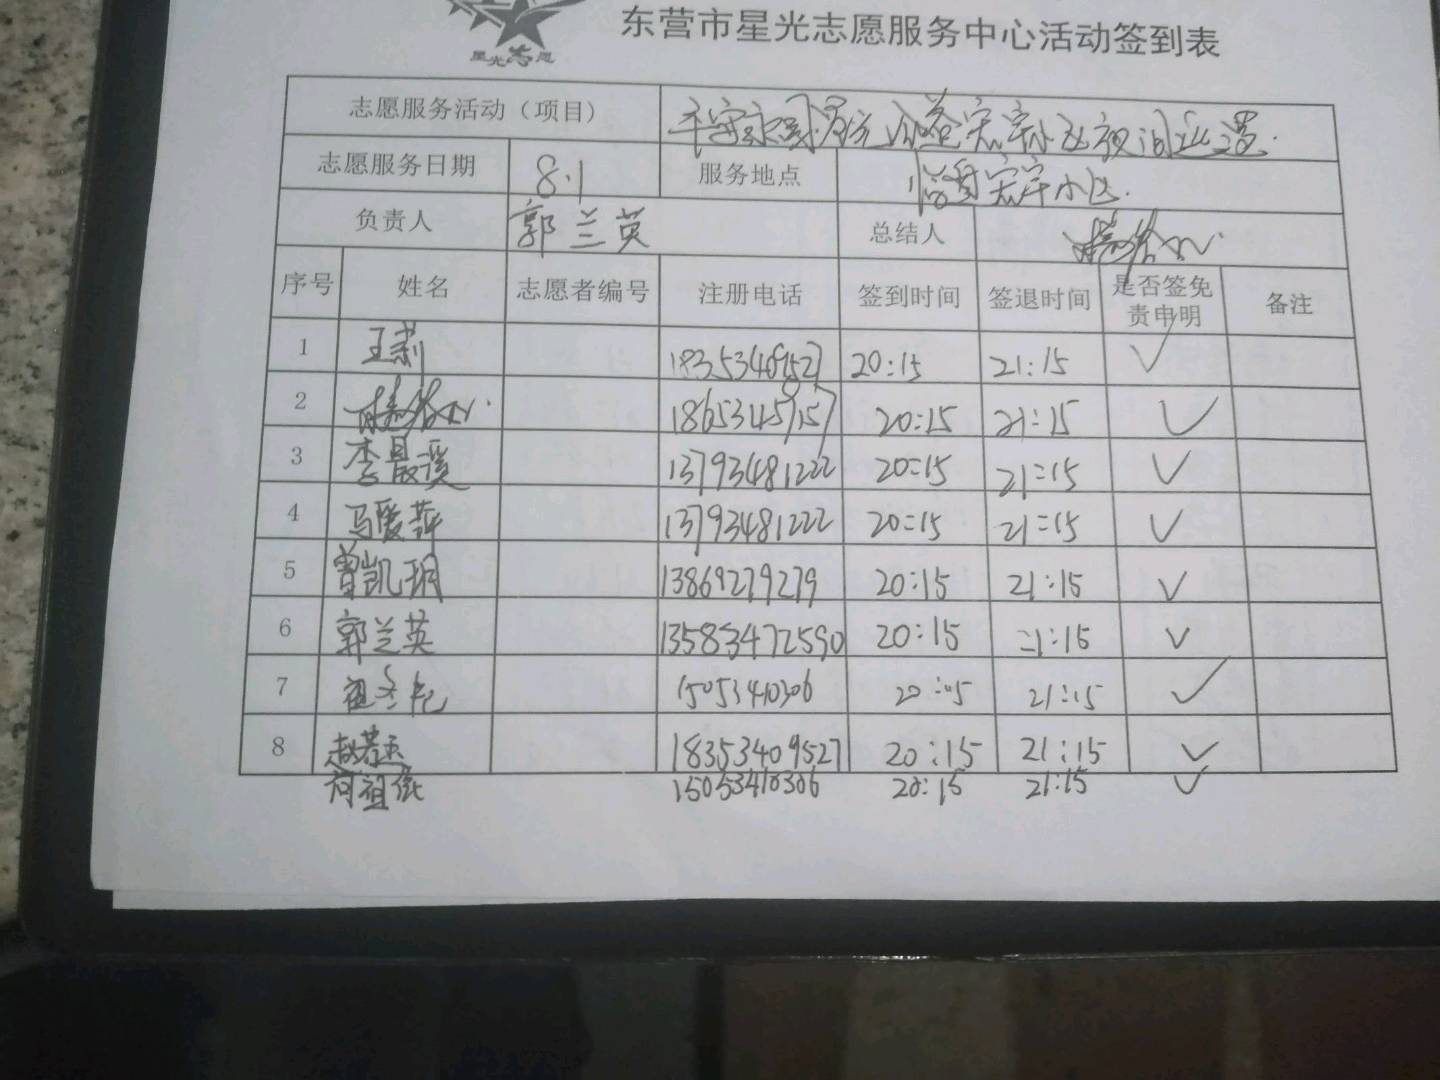 星光志愿
东营市星光志愿服务中心活动签到表
志愿服务活动（项目） 平安
志愿服务日期 8.1 服务地点 小区.
负责人 郭兰英 总结人
序号 姓名 志愿者编号 注册电话 签到时间 签退时间 是否签免责申明 备注
1 王莉 18353409527 20:15 21:15 ✓
2 20:15 21:15 ✓
3 13793481222 20:15 21:15 ✓
4 马爱萍 13793481222 20:15 21:15 ✓
5 曾凯玥 13869279279 20:15 21:15 ✓
6 郭兰英 13583472590 20:15 21:15 ✓
7 15053410306 20:15 21:15 ✓
8 赵若玉 18353409527 20:15 21:15 ✓
15053410306 20:15 21:15 ✓